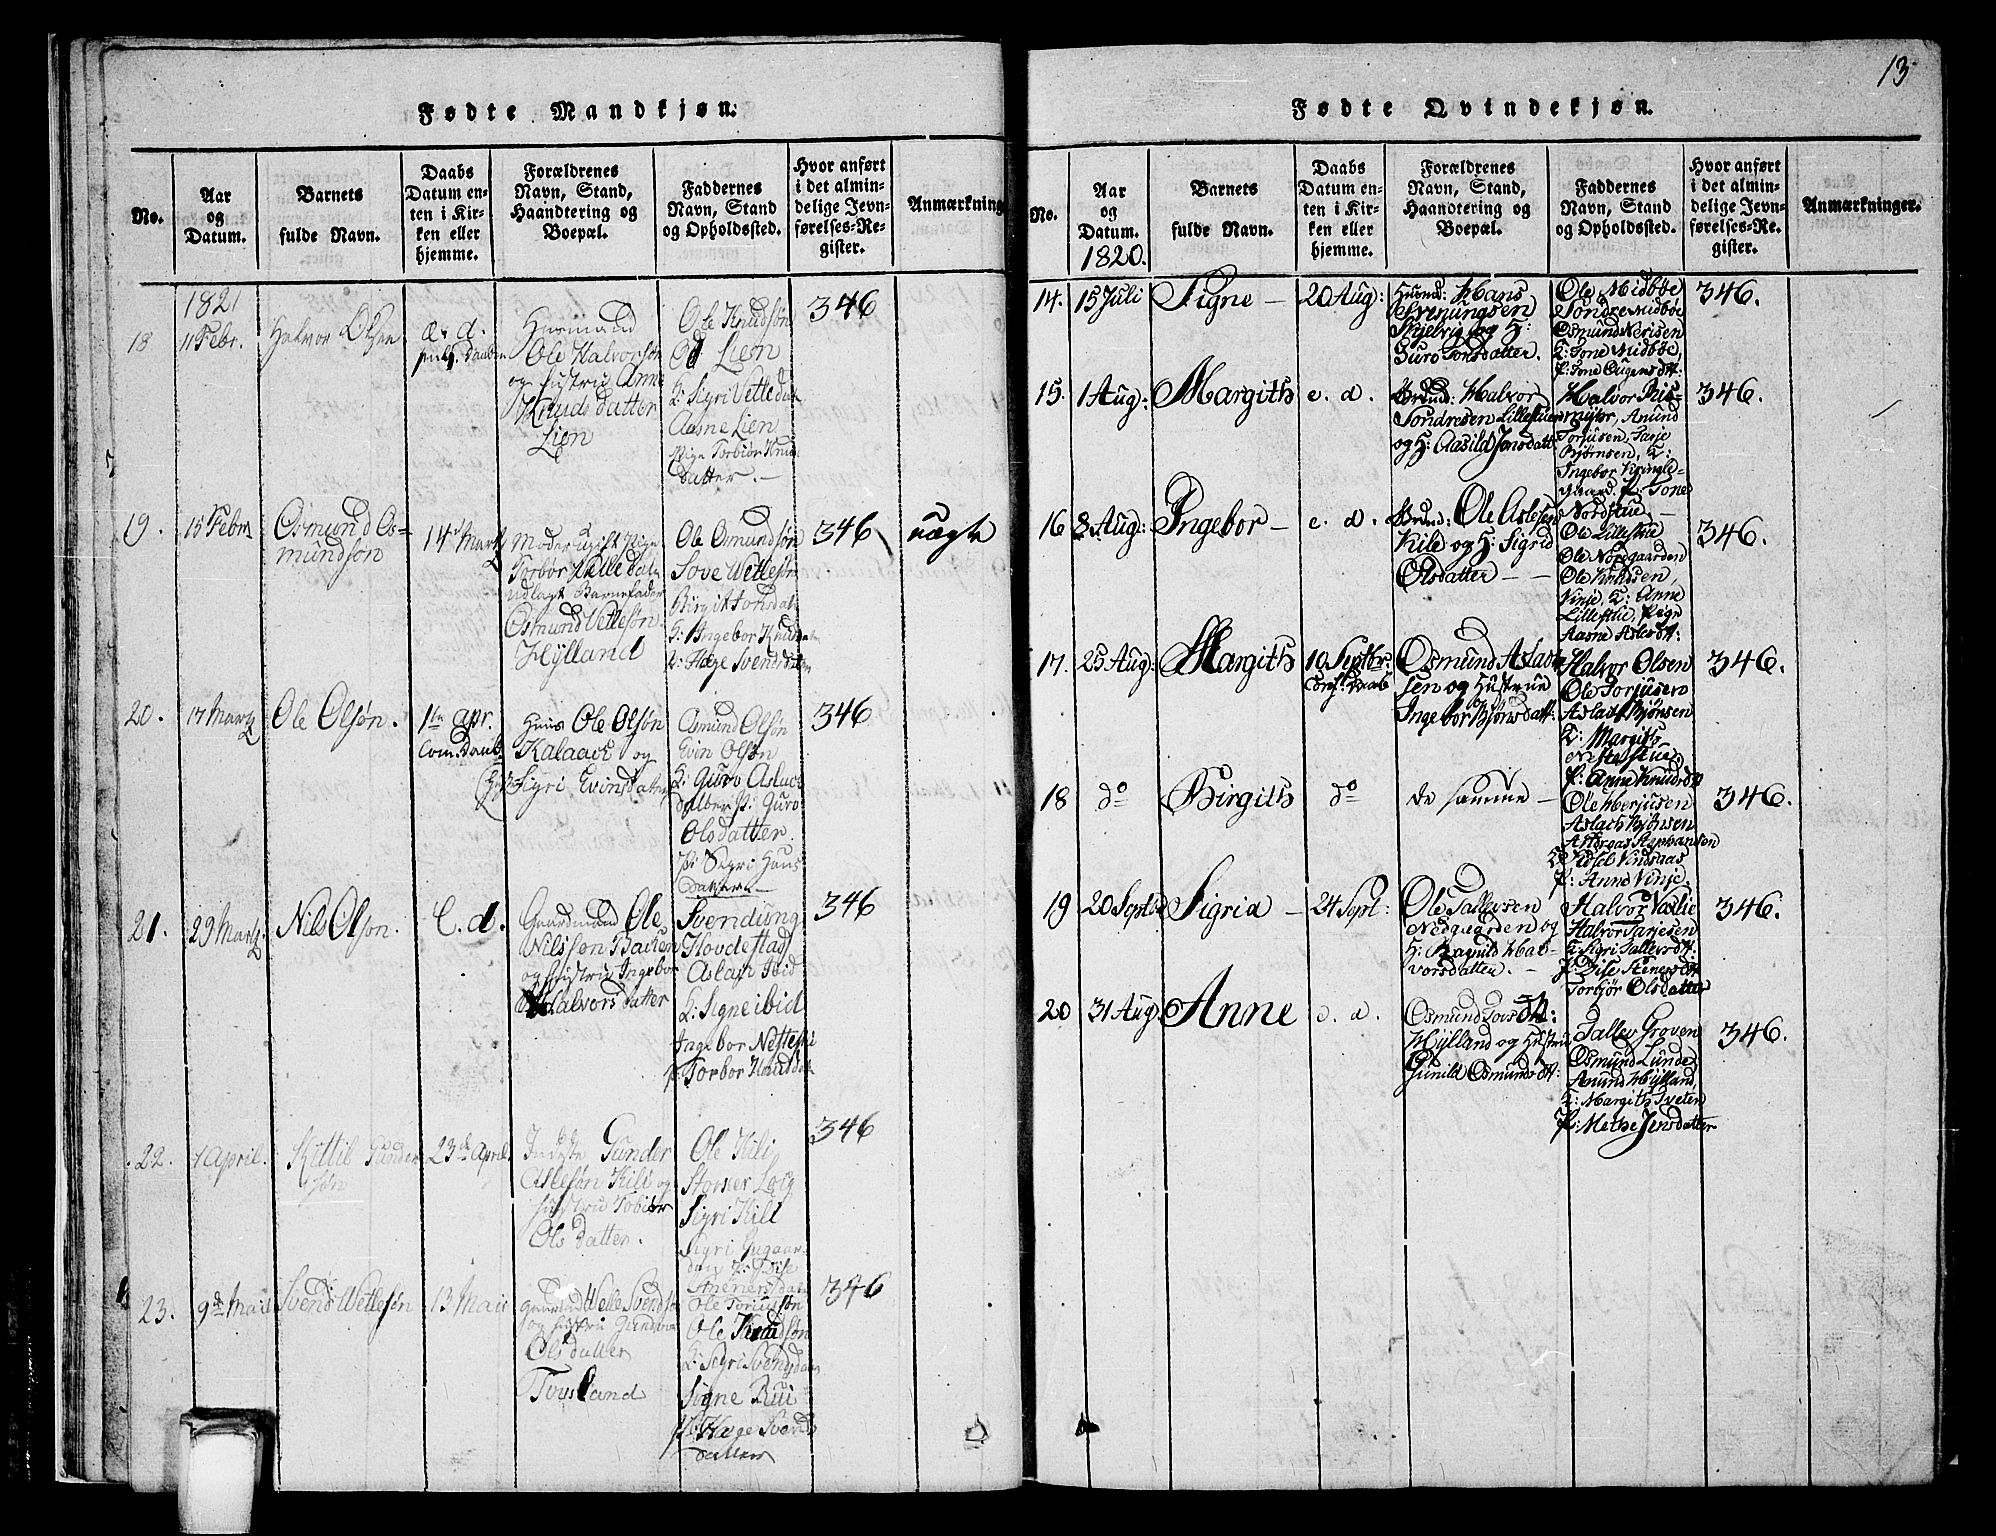 Fødte Mandkjøn.
No.
Aar
og
Datum.
Barnets
fulde Navn.
Daabs
Datum en-
ten i Kir-
ken eller
hjemme.
Forældrenes
Navn, Stand,
Haandtering og
Boepæl.
Faddernes
Navn, Stand
og Opholdssted.
Hvor anført
i det almin-
delige Jevn-
førelses-Re-
gister.
Anmærkning
1821
18
11 Febr.
Halvor Olsen
e. d.
Huusmand
Ole Halvorsøn
og Hustru Anne
Knudsdatter
Lien
Ole Knudsøn
Od Lien
K: Sigri Vettedat
Aasne Lien
Pige Torbiør Knud
datter. —
346
19.
15 Febr
Osmund Os-
mundsøn
14 Martz
Moder ugift Pige
Torbør Vetledat
udlagt Barnefader
Osmund Vetlesøn
Hylland
Ole Osmundsøn
Tove Wetlesøn
Birgit Tonsdat
K: Ingebor Knusdat
P: Hæge Svensdatter
346
uægte
20.
17 Martz
Ole Olsøn.
1te Apr.
Com. Daab
Huus Ole Olsøn
Kalaack og
Sigri Evinsdatter
Osmund Olsøn
Evin Olsøn
K: Guro Aslac
datter P: Guro
Olsdatter.
P: Sigri Hans
datter —
346
21.
29 Martz
Nils Olson.
e. d.
Gaardmand Ole
Nilssøn Backen
og Hustru Ingebor
Halvorsdatter
Svendung
Hovdestad
Aslach Ibid
K: Signe ibid
Ingebor Nestesti
P: Torbor Knutsdat
346
22.
7 April.
Kittil Gunder
søn
23de April.
Inderste Gunder
Aslesøn Kili og
Hustru Tobiør
Olsdatter.
Ole Kili
Storker Loig
Sigri Kili
Sigri Gugaar-
den P: Dise
Stenersdatt
346
23.
9de Mai
Svend Wetlesøn
13 Mai
Gaardmd Wetle Svendsøn
og Hustru Gunhild
Olsdatter
Tousland
Ole Toriusøn
Ole Knudsøn
K: Sigri Svensdatt
Signe Rui
P: Hæge Svends
datter
346
13
Fødte Qvindekjøn.
No.
Aar
og
Datum.
1820.
Barnets
fulde Navn.
Daabs
Datum en-
ten i Kir-
ken eller
hjemme.
Forældrenes
Navn, Stand,
Haandtering og
Boepæl.
Faddernes
Navn, Stand
og Opholdssted.
Hvor anført
i det almin-
delige Jevn-
førelses-Re-
gister.
Anmærkninger.
14.
15 Juli
Signe —
20 Aug:
Huusmd: Hans
Svenungsen
Skjelvig og H:
Guro Tonsdatter.
Ole Midbøe
Sondre Midbøe
Osmund Nerisen
K: Tone Midbøe,
P: Tone Eugensdtt:
346.
15.
1 Aug:
Margith
e. d.
Brmd: Halvor
Sondresen Lillestuen
og H: Aasild Jonsdatt:
Halvor Ris-
myhr, Anund
Torjusen, Tarje
Bjørnsen, K:
Ingebor Kringle-
gaard. P: Tone
Nordstue. —
346.
16
8 Aug:
Ingebor —
e. d.
Brmd: Ole Aslesen
Kile og H: Sigrid
Olsdatter — —
Ole Lillestue
Ole Nordgaarden
Ole Knudsen,
Vinje, K: Anne
Lillestue, Pige
Aasne Aslesdtt:
346.
17.
25 Aug:
Margith
10 Septbr:
Conf. Daab
Osmund Aslak-
sen og Hustrue
Ingebor Bjørnsdatt:
Halvor Olsen
Ole Torjusen
Aslach Bjønsen
K: Margith
Nestestue,
P: Anne Knudsdtt
346.
18
do
Birgith
do
de samme —
Ole Herjusen
Aslach Bjønsen
Andreas Stephansen
K: Kidsel Vindsaas
P: Anne Vinje.
346.
19
20 Septbr
Sigrid —
24 Sept:
Ole Tallefsen
Nedgaarden og
H: Ragnild Hal-
vorsdatter. —
Halvor Vaslie
Halvor Tarjesen
K: Sigri Tallevsdtt.
P: Dise Stenersdtt
Torbjør Olsdatter
346.
20
31 Aug
Anne
e. d.
Osmund Tovsdtt:
Hylland og Hustru
Gunild Osmundsdtt:
Tallev Groven
Osmund Lunde
Anund Hylland
K: Margith Tveten
P: Methe Jensdatter
346.